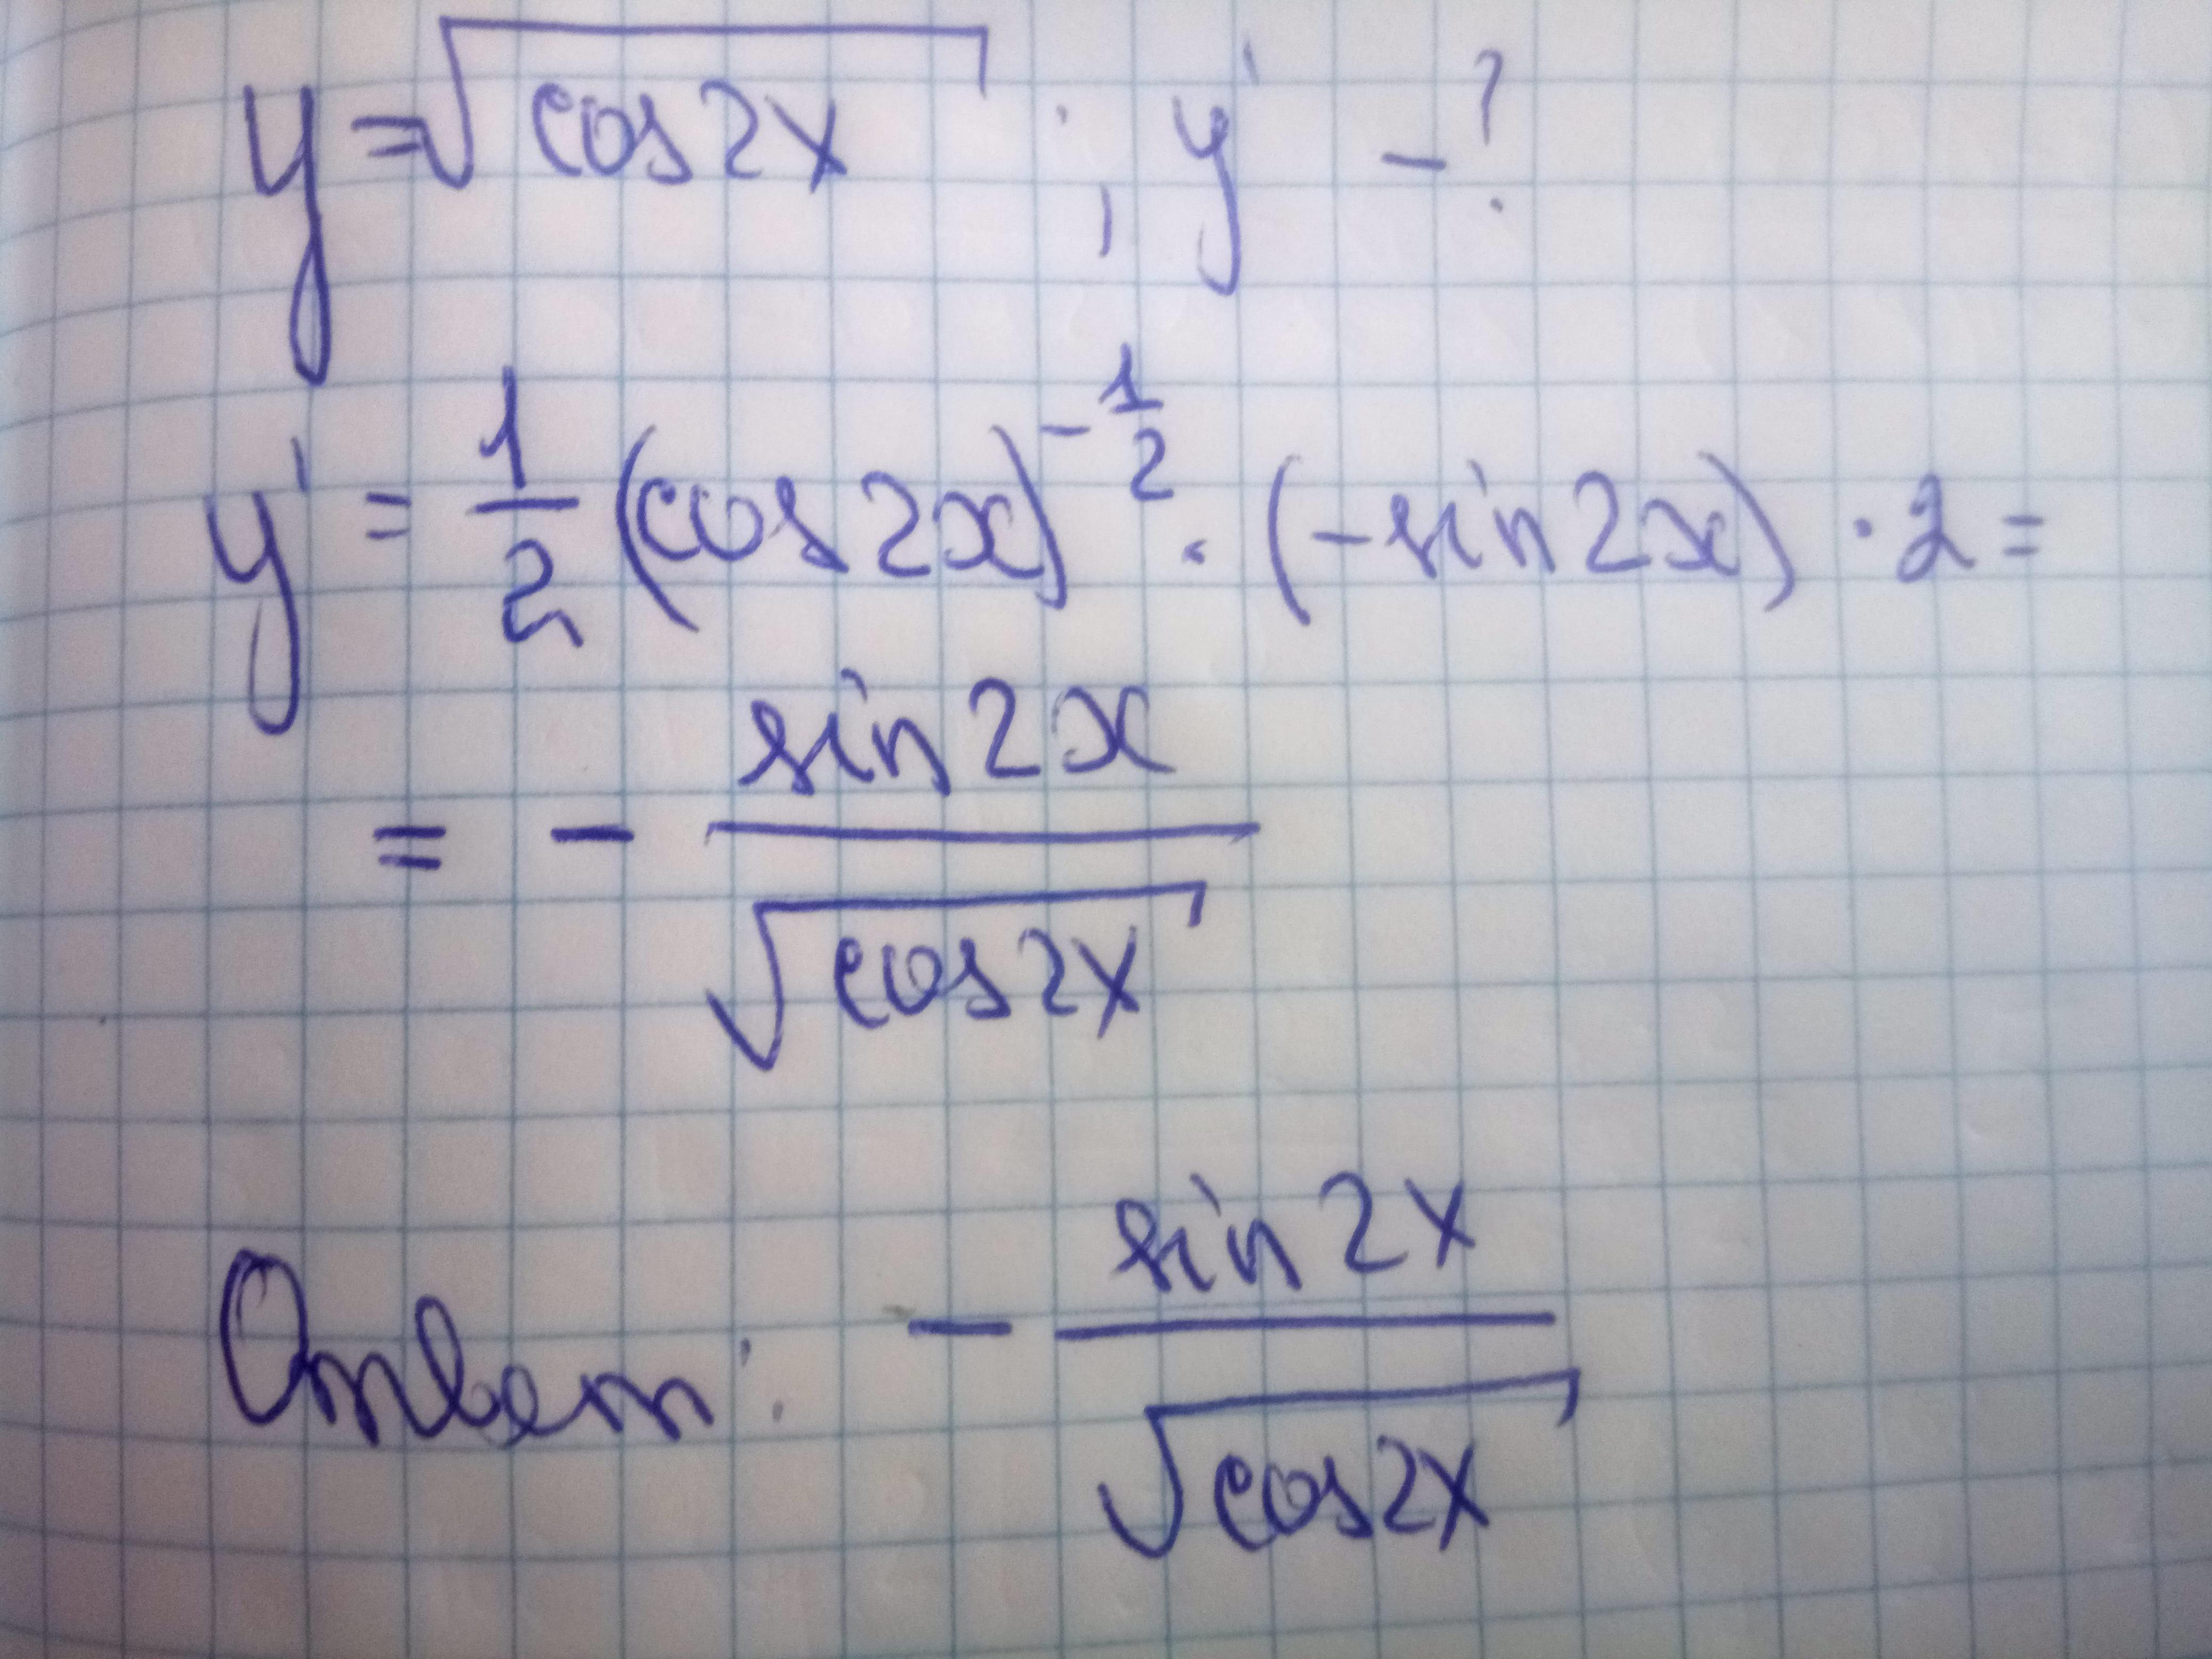 y = √cos2x ; y' - ?
y' = 1/2 (cos2x)^(-1/2) · (-sin2x) · 2 =
= - sin2x / √cos2x
Ответ: - sin2x / √cos2x